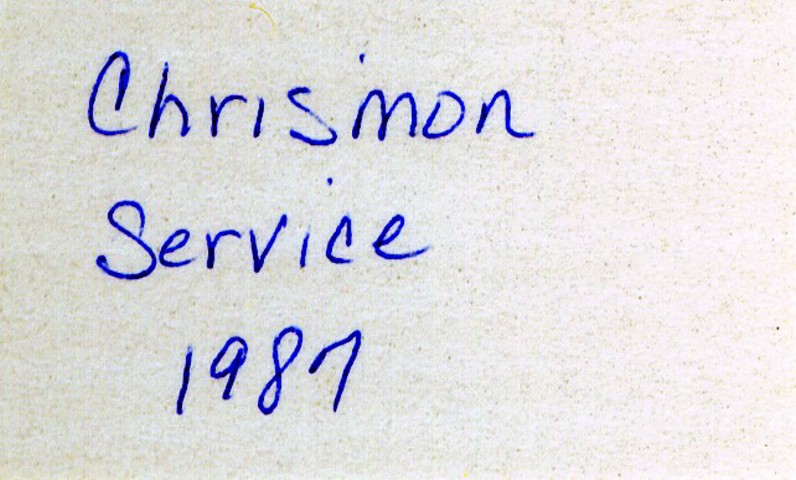 Chrismon
Service
1987